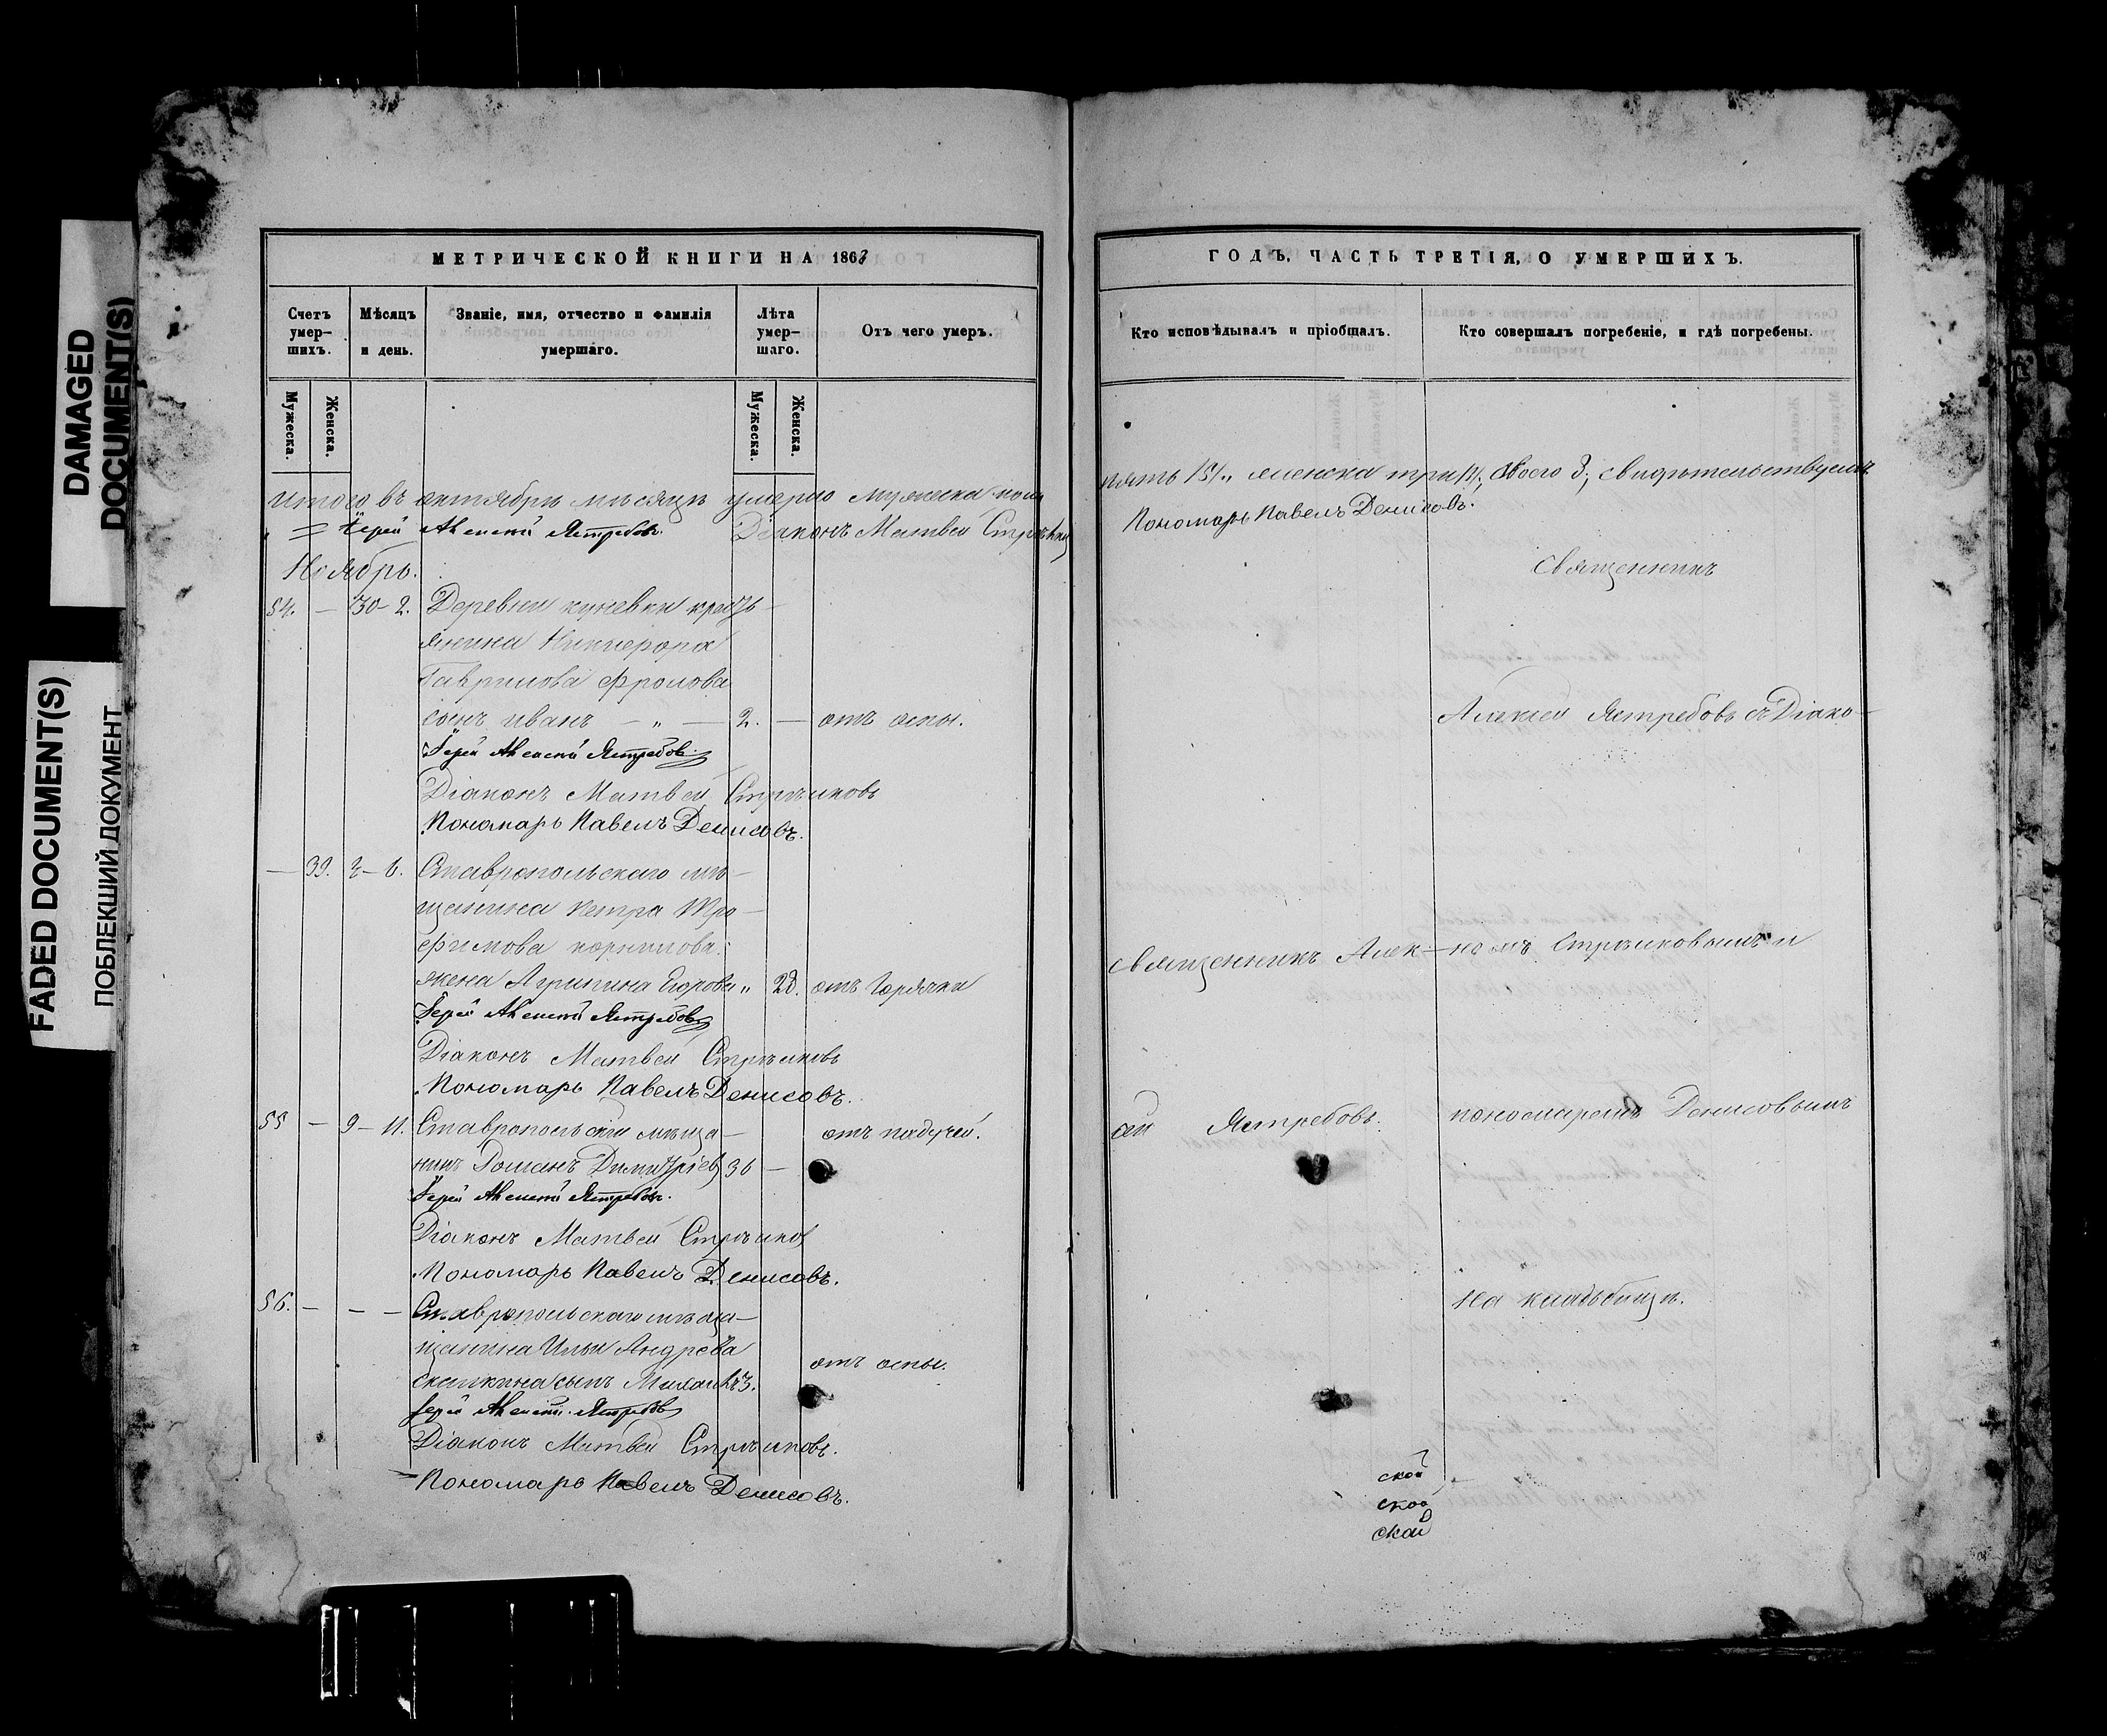 DAMAGED
DOCUMENT(S)
FADED DOCUMENT(S)
ПОБЛЕКШИЙ ДОКУМЕНТ
МЕТРИЧЕСКОЙ КНИГИ НА 1863
Счетъ умер-шихъ.
Мѣсяцъ и день.
Званіе, имя, отчество и фамилія умершаго.
Лѣта умер-шаго.
Отъ чего умеръ.
Мужеска.
Женска.
Мужеска.
Женска.
Итого въ октябрѣ мѣсяцѣ умерло мужеска пола
Іерей Алексій Ястребовъ. Діаконъ Матвей
Ноябрь.
54. — 30– 2. Деревни куневки кресть–
янина Никифора
Гаврилова Фролова
сынъ иванъ — „ — 2. — отъ оспы.
Іерей Алексій Ястребовъ
Діаконъ Матвей
Пономарь Павелъ Денисовъ.
— 39. 3– 6. Ставропольскаго мѣ–
щанина Петра Тро–
фимова корнилова
жена Агрипина Егорова „ 28. отъ Горячки
Іерей Алексій Ястребовъ
Діаконъ Матвей
Пономарь Павелъ Денисовъ.
55 — 9– 11. Ставропольскій мѣща–
нинъ Романъ Димитріев 36 — отъ падучей.
Іерей Алексій Ястребовъ.
Діаконъ Матвей
Пономарь Павелъ Денисовъ.
56. — — — Ставропольскаго мѣща–
щанина Ильи Андрева
сынъ 3. отъ оспы.
Іерей Алексій Ястребовъ
Діаконъ Матвей
Пономарь Павелъ Денисовъ.
ГОДЪ, ЧАСТЬ ТРЕТІЯ, О УМЕРШИХЪ.
Кто исповѣдывалъ и пріобщалъ.
Кто совершалъ погребеніе, и гдѣ погребены.
пять /5/„ женска три обоего свидѣтельствуемъ
Пономарь Павелъ Денисовъ.
Священникъ
Алексей Ястребовъ съ Діако–
Священникъ Алек–
номъ и
сей Ястребовъ.
пономаремъ Денисовымъ
На кладбищѣ.
ской
ской
ской